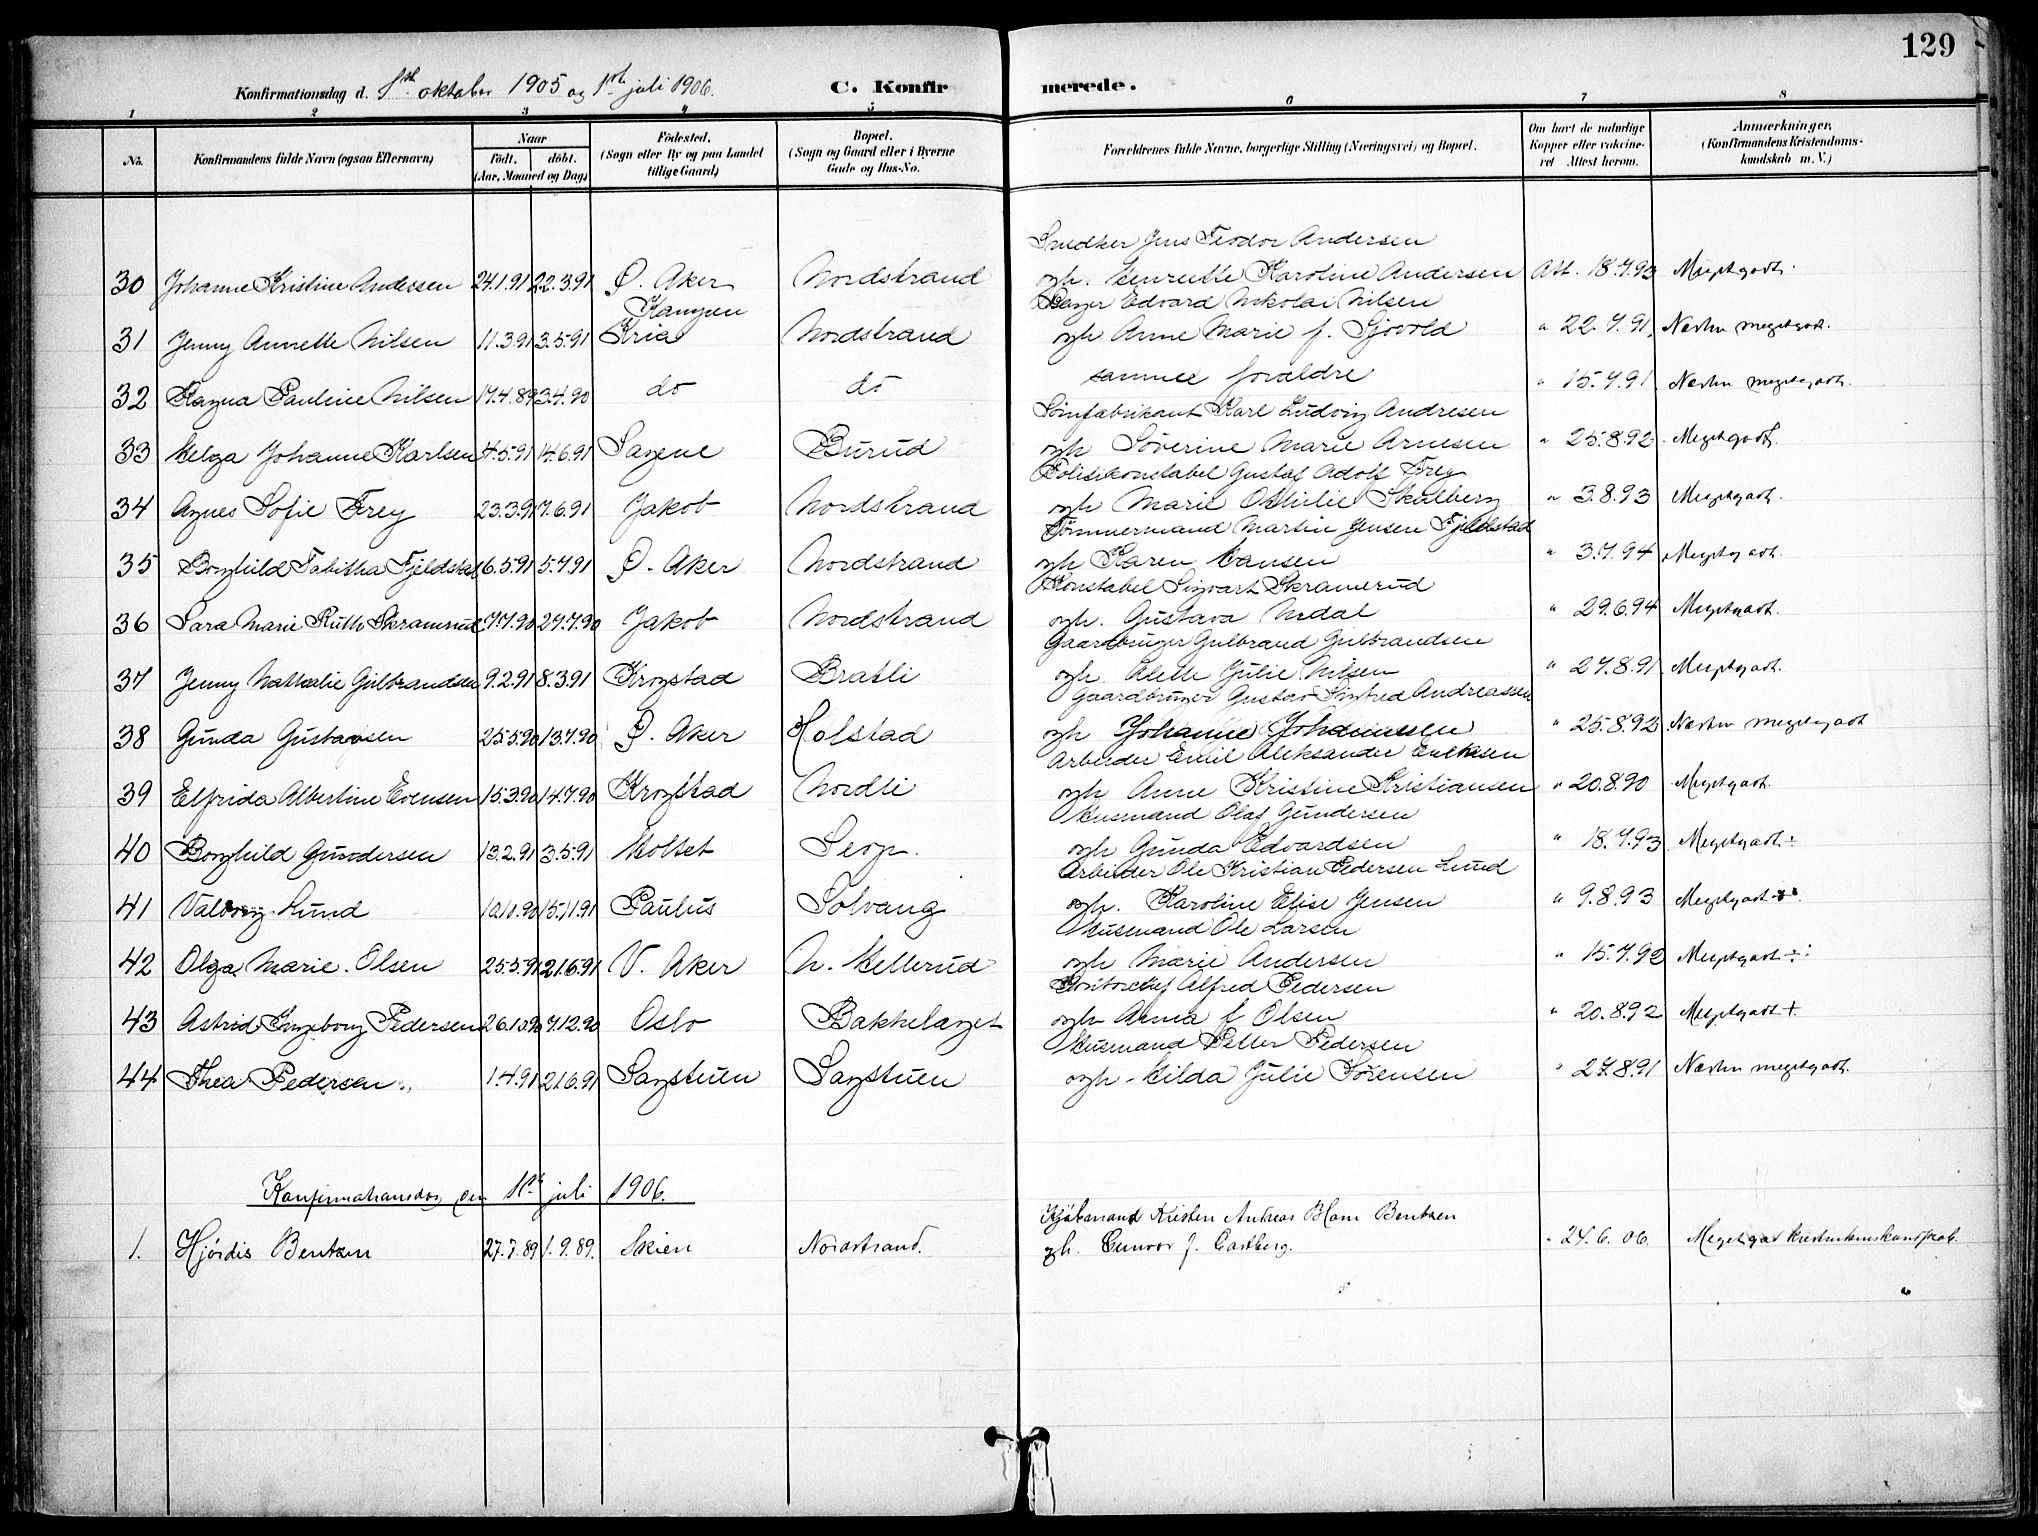 129
Konfirmationsdag d. 1ste oktober 1905 og 1ste juli 1906. C. Konfirmerede.
1 2 3 4 5 6 7 8
No. Konfirmandens fulde Navn (ogsaa Efternavn) Naar födt. döbt. (Aar, Maaned og Dag) Födested. (Sogn eller By og paa Landet tillige Gaard) Bopæl. (Sogn og Gaard eller i Byerne Gade og Hus-No. Forældrenes fulde Navne, borgerlige Stilling (Næringsvei) og Bopæl. Om havt de naturlige Kopper eller vaccineret Attest herom. Anmærkninger. (Konfirmandens Kristendomskundskab m. V.)
Snedker Jens Teodor Andersen
30 Johanne Kristine Andersen 24.1.91 22.3.91 Ø. Aker Nordstrand ogh. Henriette Karoline Andersen Att. 18.7.93 Megetgodt.
Kampen Edvard Nikolai Nilsen
31 Jenny Annette Nilsen 11.3.91 3.5.91 Kria Nordstrand ogh. Anne Marie f. Sjøvold " 22.7.91 Næsten megetgodt.
32 Ragna Pauline Nilsen 17.4.89 3.4.90 do do samme forældre " 15.7.91 Næsten megetgodt.
Karl Ludvig Andresen
33 Helga Johanne Karlsen 4.5.91 14.6.91 Sagene Burud ogh Søverine Marie Arnesen " 25.8.92 Megetgodt.
Politikonstabel Gustaf Adolf Frey
34 Agnes Sofie Frey 23.3.91 7.6.91 Jakob Nordstrand ogh Marie Othilie Skulberg " 3.8.93 Megetgodt.
Tømmermand Martin Jensen Fjeldstad
35 Borghild Tabitha Fjeldstad 6.5.91 5.7.91 Ø. Aker Nordstrand ogh Karen Hansen " 3.7.94 Megetgodt.
Konstabel Sigvart Skramerud
36 Sara Marie Ruth Skramerud 7.7.90 27.7.90 Jakob Nordstrand ogh. Gustava Nedal " 29.6.94 Megetgodt.
Gaardbruger Gulbrand Gulbrandsen
37 Jenny Nathalie Gulbrandsen 9.2.91 8.3.91 Krogstad Bratli ogh. Alette Julie Nilsen " 27.8.91 Megetgodt.
Gaardbruger Gustav Sigfred Andreassen
38 Gunda Gustavsen 25.5.90 13.7.90 Ø. Aker Holstad ogh Johanne Johannessen " 25.8.92 Næsten megetgodt
Arbeider Emil Aleksander Evensen
39 Elfrida Albertine Evensen 15.3.90 14.7.90 Krogstad Nordli ogh Anne Kristine Kristiansen " 20.8.90 Megetgodt.
Husmand Olaf Gundersen
40 Borghild Gundersen 13.2.91 3.5.91 Holtet Seop. ogh Gunda Edvardsen " 18.7.93 Megetgodt ÷
Arbeider Ole Kristian Pedersen Lund
41 Valborg Lund 10.11.90 15.11.91 Paulus Solvang ogh. Karoline Elise Jensen " 9.8.93 Megetgodt
Husmand Ole Larsen
42 Olga Marie Olsen 25.5.91 21.6.91 V. Aker N. Hellerud ogh Marie Andersen " 15.7.92 Megetgodt ÷
Kontorchef Alfred Pedersen
43 Astrid Ingeborg Pedersen 26.10.90 7.12.90 Oslo Bakkelaget ogh Anna f Olsen " 20.8.92 Megetgodt +
Husmand Petter Pedersen
44 Thea Pedersen 1.4.91 21.6.91 Sagstuen Sagstuen ogh. Hilda Julie Sørensen " 27.8.91 Næsten megetgodt.
Konfirmationsdag den 1ste juli 1906.
Kjøbmand Kristen Andreas Blom Bentzen
1. Hjørdis Bentzen 27.7.89 1.9.89. Skien Nordstrand. ogh. Gunvor f. Castberg. " 24.6.06. Meget god kristendomskundskab.